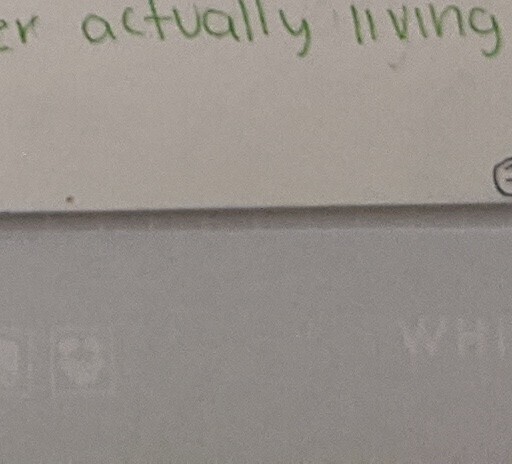 er actually living
WHI